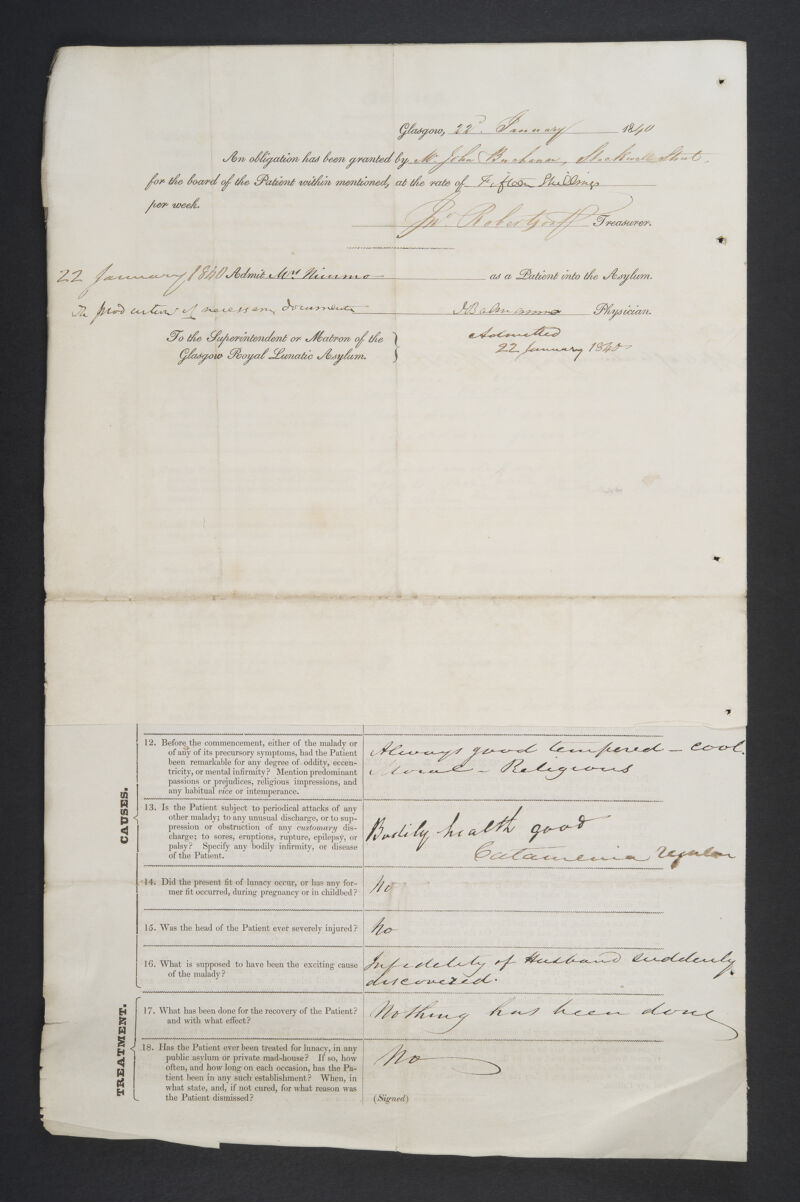 Glasgow, 22d. January 1840
An obligation has been granted by Mr John Buchanan, Stockwell Street,
for the board of the Patient within mentioned, at the rate of Fifteen Shillings
per week.
Jno. Robertson Treasurer.
22 January 1840 Admit Mrs Nimmo as a Patient into the Asylum.
On production of necessary documents
JBalmanno Physician.
To the Superintendent or Matron of the
Glasgow Royal Lunatic Asylum.
Admitted
22 January 1840
CAUSES.
12. Before the commencement, either of the malady or
of any of its precursory symptoms, had the Patient
been remarkable for any degree of oddity, eccen-
tricity, or mental infirmity? Mention predominant
passions or prejudices, religious impressions, and
any habitual vice or intemperance.
Always good tempered – cool.
Moral – Religious
13. Is the Patient subject to periodical attacks of any
other malady; to any unusual discharge, or to sup-
pression or obstruction of any customary dis-
charge; to sores, eruptions, rupture, epilepsy, or
palsy? Specify any bodily infirmity, or disease
of the Patient.
Bodily health good
Catamenia regular
14. Did the present fit of lunacy occur, or has any for-
mer fit occurred, during pregnancy or in childbed?
No
15. Was the head of the Patient ever severely injured?
No
16. What is supposed to have been the exciting cause
of the malady?
Infidelity of Husband suddenly
discovered.
TREATMENT.
17. What has been done for the recovery of the Patient?
and with what effect?
Nothing has been done
18. Has the Patient ever been treated for lunacy, in any
public asylum or private mad-house? If so, how
often, and how long on each occasion, has the Pa-
tient been in any such establishment? When, in
what state, and, if not cured, for what reason was
the Patient dismissed?
No
(Signed)